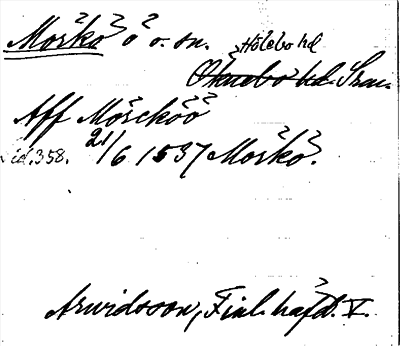 Morkö ö o. sn. Hölebo hd
Öknebo hd. Srm.
Aff Mörcköö
sid. 358. 21/6 1537 Morkö.
Arwidsson, Finl. häfd. V.